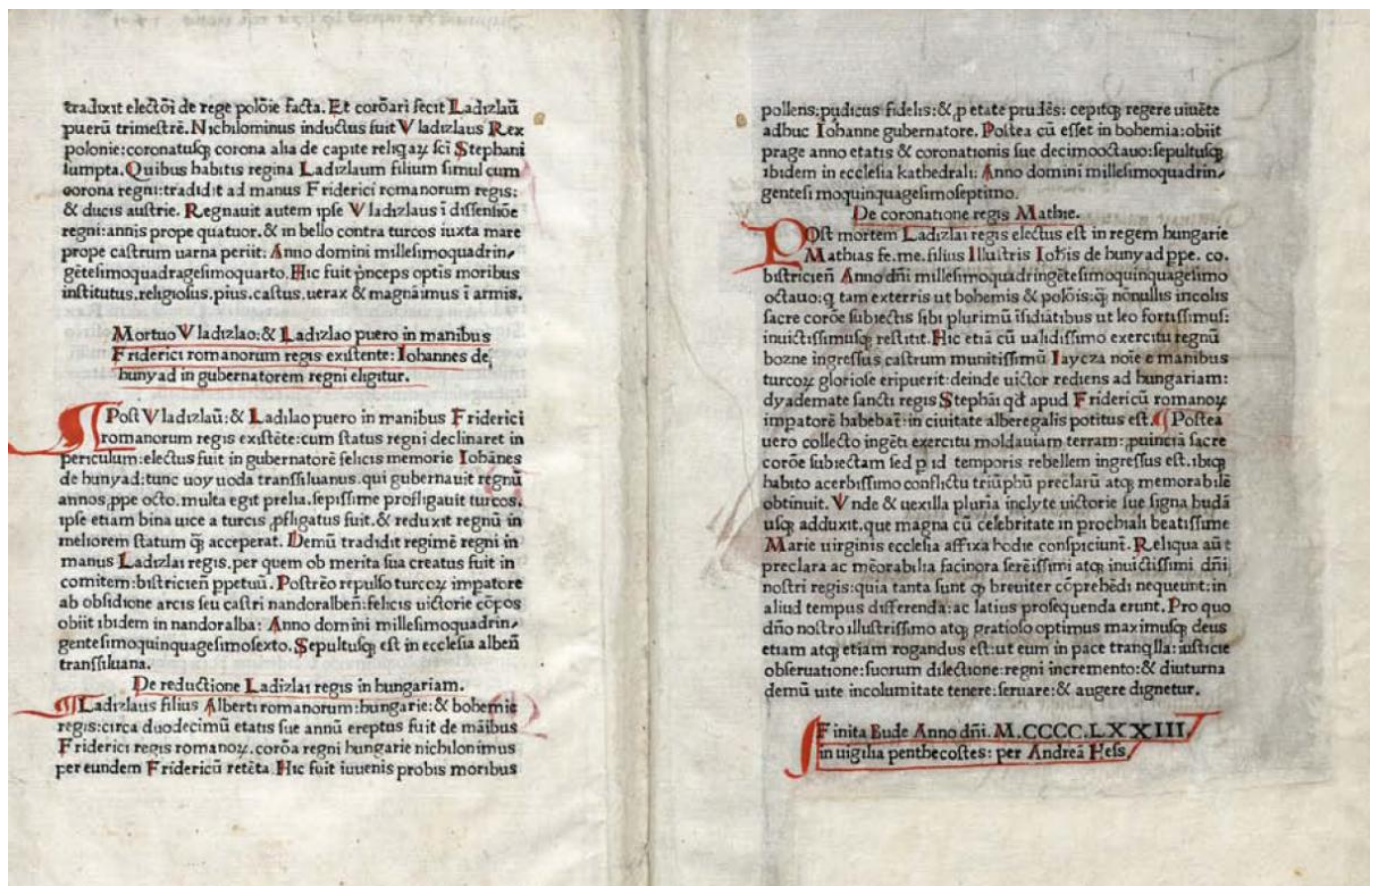 tradixit electōi de rege polōie facta. Et corōari fecit Ladizlaū
puerū trimestrē. Nichilominus inductus fuit Vladizlaus Rex
polonie: coronatusqꝫ corona alia de capite reliqaꝝ sci Stephani
sumpta. Quibus habitis regina Ladizlaum filium simul cum
corona regni: tradidit ad manus Friderici romanorum regis:
& ducis austrie. Regnauit autem ipse Vladizlaus ī dissensiōe
regni: annis prope quatuor. & in bello contra turcos iuxta mare
prope castrum uarna periit: Anno domini millesimoquadrin⸗
gētesimoquadragesimoquarto. Hic fuit p̄nceps optis moribus
institutus. religiosus. pius. castus. uerax & magnāimus ī armis.
Mortuo Vladizlao: & Ladizlao puero in manibus
Friderici romanorum regis existente: Iohannes de
hunyad in gubernatorem regni eligitur.
¶ Post Vladizlaū: & Ladilao puero in manibus Friderici
romanorum regis existēte: cum status regni declinaret in
periculum: electus fuit in gubernatorē felicis memorie Iohānes
de hunyad: tunc uoyuoda transsiluanus. qui gubernauit regnū
annos ꝓpe octo. multa egit prelia. sepissime profligauit turcos.
ipse etiam bina uice a turcis ꝓfligatus fuit. & reduxit regnū in
meliorem statum qꝫ̄ acceperat. Demū tradidit regimē regni in
manus Ladizlai regis. per quem ob merita sua creatus fuit in
comitem: bistricien̄ ppetuū. Postrēo repulso turcoꝝ impatore
ab obsidione arcis seu castri nandoralben̄: felicis uictorie cōpos
obiit ibidem in nandoralba: Anno domini millesimoquadrin⸗
gentesimoquinquagesimosexto. Sepultusqꝫ est in ecclesia alben̄
transsiluana.
De reductione Ladizlai regis in hungariam.
¶ Ladizlaus filius Alberti romanorum: hungarie: & bohemie
regis: circa duodecimū etatis sue annū ereptus fuit de māibus
Friderici regis romanoꝝ. corōa regni hungarie nichilonimus
per eundem Fridericū retēta. Hic fuit iuuenis probis moribus
pollens: pudicus fidelis: & ꝓ etate prudēs: cepitqꝫ regere uiuēte
adhuc Iohanne gubernatore. Postea cū esset in bohemia: obiit
prage anno etatis & coronationis sue decimooctauo: sepultusqꝫ
ibidem in ecclesia kathedrali: Anno domini millesimoquadrin⸗
gentesimoquinquagesimoseptimo.
De coronatione regis Mathie.
POst mortem Ladizlai regis electus est in regem hungarie
Mathias fe. me. filius Illustris Iohīs de hunyad ppe. co.
bistricien̄ Anno dn̄i millesimoquadringētesimoquinquagesimo
octauo: q tam exterris ut bohemis & polōis: qꝫ̄ nōnullis incolis
sacre corōe subiectis sibi plurimū īsidiātibus ut leo fortissimus:
inuictissimusqꝫ restitit. Hic etiā cū ualidissimo exercitu regnū
bozne ingressus castrum munitissimū Iaycza noīe e manibus
turcoꝝ gloriose eripuerit: deinde uictor rediens ad hungariam:
dyademate sancti regis Stephāi qd̄ apud Fridericū romanoꝝ
impatorē habebat̄: in ciuitate alberegalis potitus est. ¶ Postea
uero collecto ingēti exercitu moldauiam terram: ꝓuinciā sacre
corōe subiectam sed p id temporis rebellem ingressus est. ibiqꝫ
habito acerbissimo conflictu triūphū preclarū atqꝫ memorabilē
obtinuit. Vnde & uexilla pluria inclyte uictorie sue signa budā
usqꝫ adduxit. que magna cū celebritate in prochiali beatissime
Marie uirginis ecclesia affixa hodie conspiciunt̄. Reliqua aūt
preclara ac mēorabilia facinora serēissimi atqꝫ inuictissimi dn̄i
nostri regis: quia tanta sunt qꝫ breuiter cōprehēdi nequeunt: in
aliud tempus differenda: ac latius prosequenda erunt. Pro quo
dn̄o nostro illustrissimo atqꝫ gratioso optimus maximusqꝫ deus
etiam atqꝫ etiam rogandus est: ut eum in pace tranqlla: iusticie
obseruatione: suorum dilectione: regni incremento: & diuturna
demū uite incolumitate tenere: seruare: & augere dignetur.
Finita Bude Anno dn̄i. M.CCCC.LXXIII.
in uigilia penthecostes: per Andreā Hess